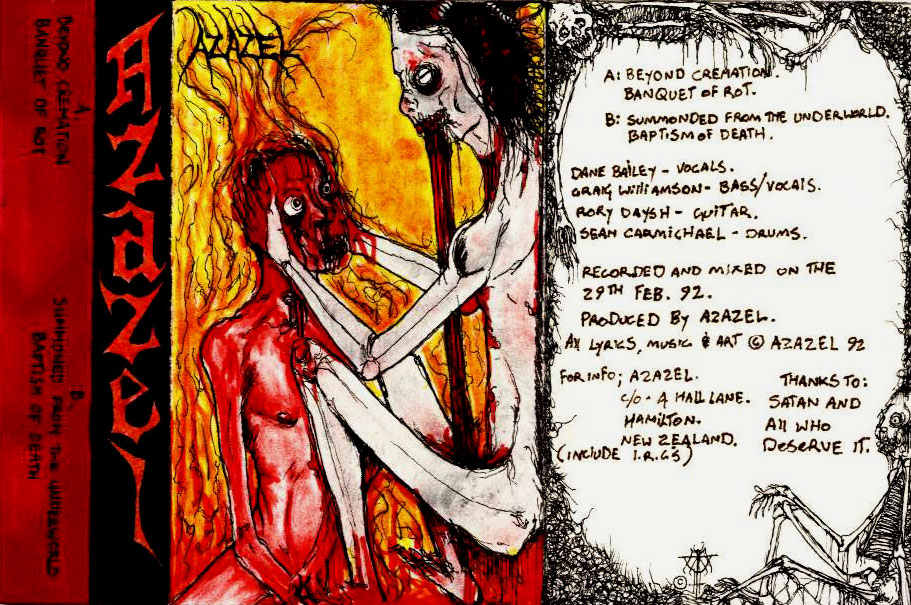 A
BEYOND CREMATION
BANQUET OF ROT
B:
SUMMONED FROM THE UNDERWORLD
BAPTISM OF DEATH
Azazel
AZAZEL
A: BEYOND CREMATION.
BANQUET OF ROT.
B: SUMMONDED FROM THE UNDERWORLD.
BAPTISM OF DEATH.
DANE BAILEY - VOCALS.
CRAIG WILLIAMSON - BASS/VOCALS.
RORY DAYSH - GUITAR.
SEAN CARMICHAEL - DRUMS.
RECORDED AND MIXED ON THE
29TH FEB. 92.
PRODUCED BY AZAZEL.
All LYRICS, MUSIC & ART © AZAZEL 92
FOR INFO; AZAZEL.
C/O - 4 HALL LANE.
HAMILTON.
NEW ZEALAND.
(INCLUDE I.R.C'S)
THANKS TO:
SATAN AND
All WHO
DESERVE IT.
©